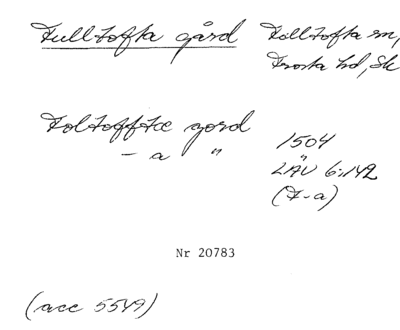 Fulltofta gård Fulltofta sn,
Frosta hd, Sk
Foltofftæ gord 1504
– a " LÄU 6:142
(F-a)
Nr 20783
(acc 5549)